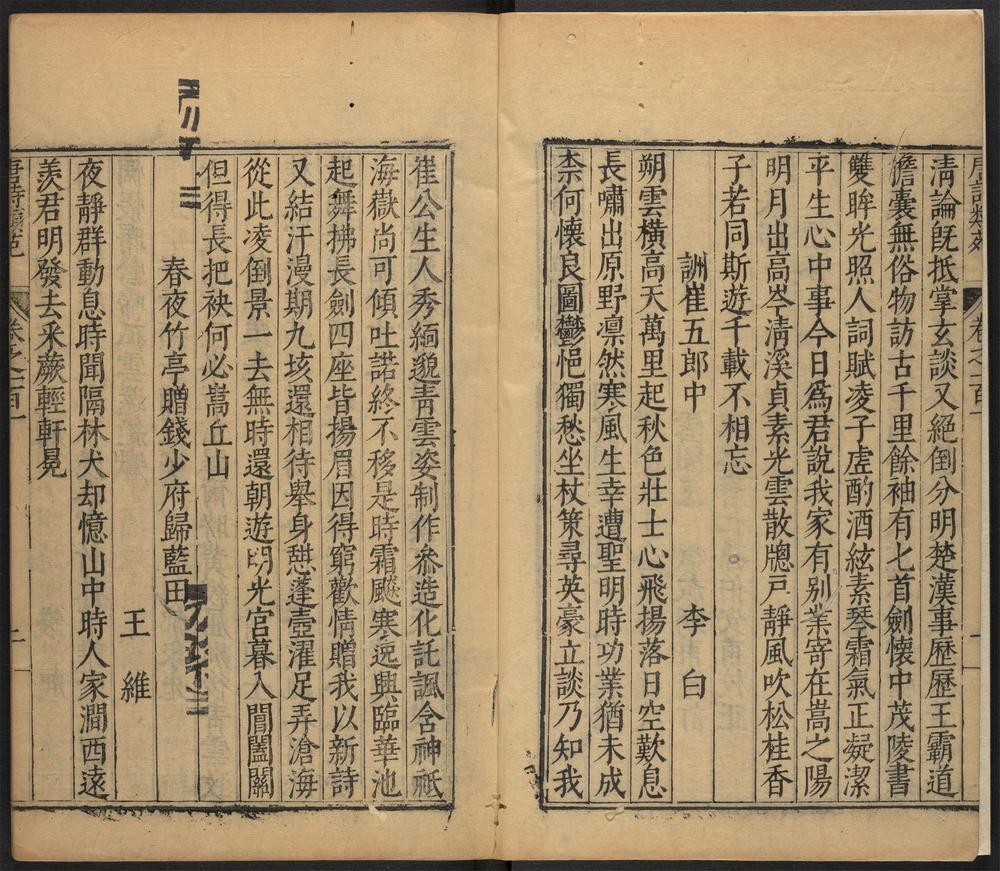 清論旣抵掌玄談又絕倒分明楚漢事歷歷王霸道
擔囊無俗物訪古千里餘袖有匕首劍懷中茂陵書
雙眸光照人詞賦凌子虛酌酒絃素琴霜氣正凝潔
平生心中事今日爲君說我家有别業寄在嵩之陽
明月出高岑淸溪貞素光雲散牕戶靜風吹松桂香
子若同斯遊千載不相忘
訓崔五郎中
李白
朔雲橫高天萬里起秋色壯士心飛揚落日空歎息
長嘯出原野凛然寒風生幸遭聖明時功業猶未成
柰何懷良圖鬱悒獨愁坐杖策尋英豪立談乃知我
崔公生人秀緬邈青雲姿制作參造化託諷含神祇
海嶽尚可傾吐諾終不移是時霜飈寒逸興臨華池
起舞拂長劍四座皆揚眉因得窮歡情贈我以新詩
又結汗漫期九垓還相待舉身憇蓬壺濯足弄滄海
從此凌倒景一去無時還朝遊明光宫暮入閶闔關
但得長把袂何必嵩丘山
春夜竹亭贈錢少府歸藍田
王維
夜靜群動息時聞隔林犬却憶山中時人家澗西遠
羨君明發去采蕨輕軒冕
卷之一百一